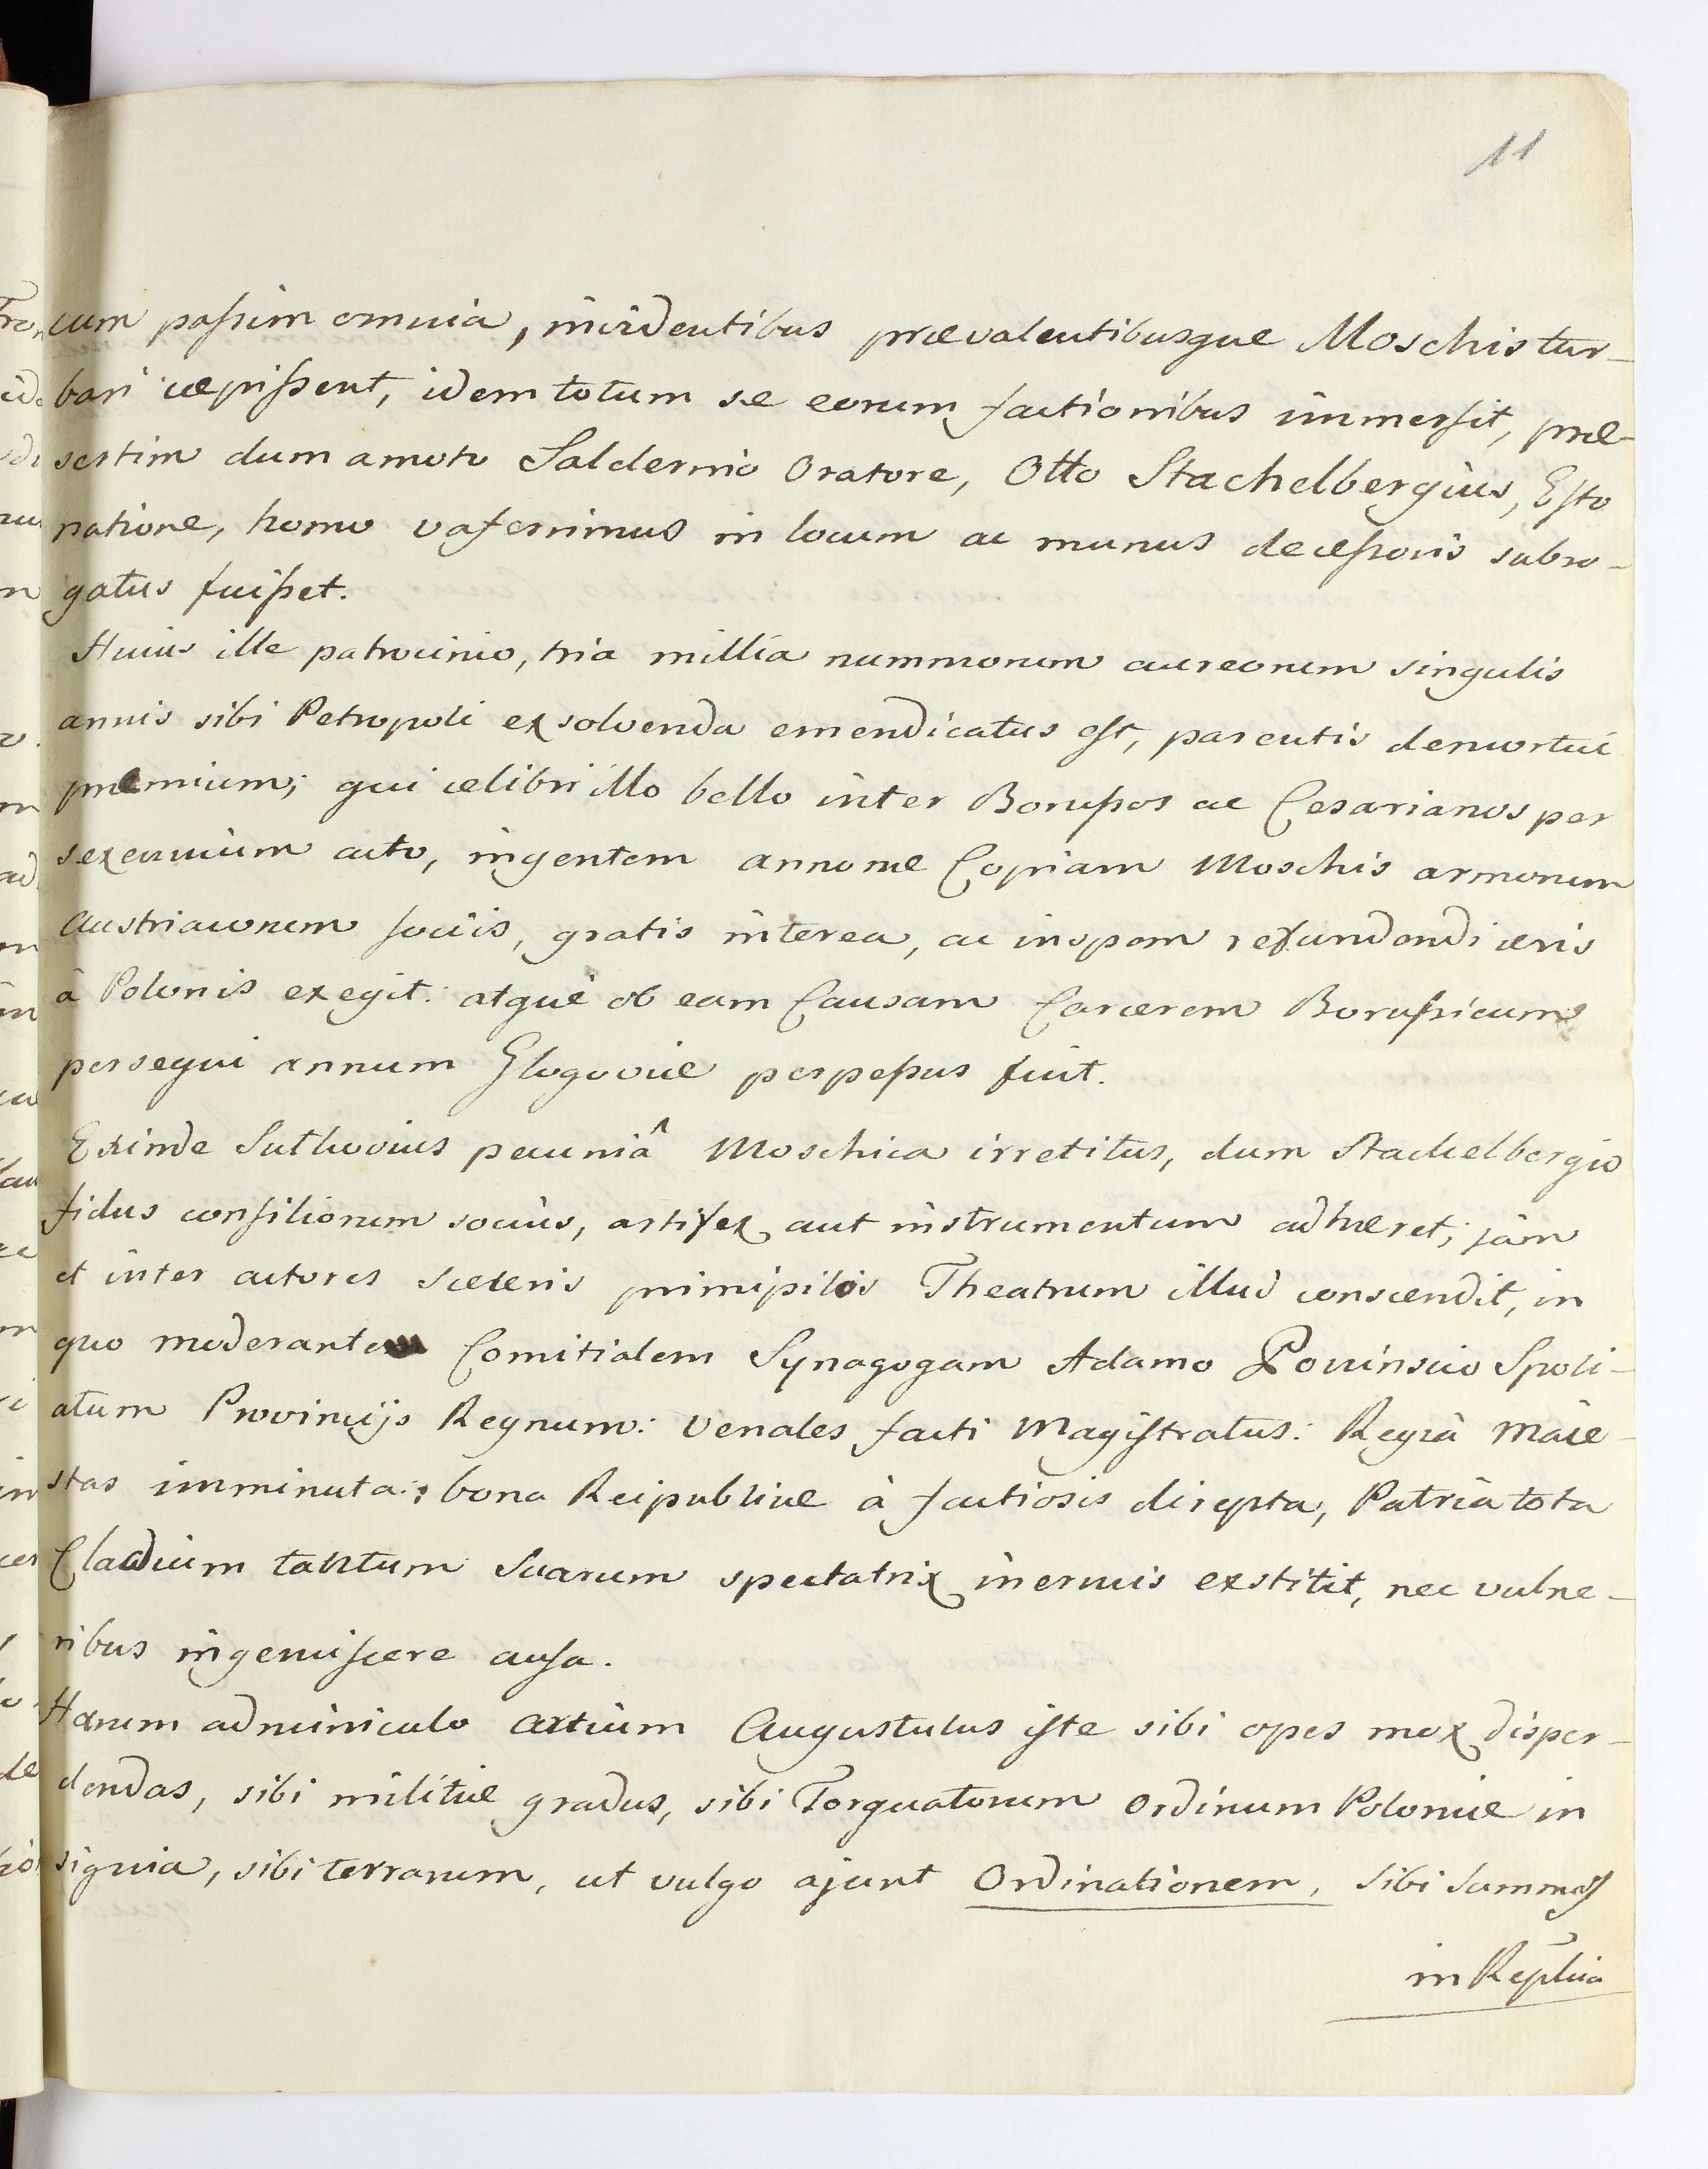 11
cum passim omnia, invidentibus prævalentibusque Moschis tur-
bari cæpissent, idem totum se eorum factionibus immersit, præ-
sertim dum amoto Saldernio Oratore, Otto Stachelbergius, Esto
natione, homo vaferrimus in locum ac munus decessoris subro-
gatus fuisset.
Huius ille patrocinio, tria millia nummorum aureorum singulis
annis sibi Petropoli exsolvenda emendicatus est, parentis demortui
præmium; qui celibri illo bello inter Borussos ac Cesarianos per
sexennium acto, ingentem annonæ Copiam Moschis armorum
Austriacorum sociis, gratis interea, ac in spem refundendi æris
à Polonis exegit: atque ob eam Causam Carcerem Borussicum
persequi annum Glogoviæ perpessus fuit.
Exinde Sulkovius pecuniâ Moschica irretitus, dum Stachelbergio
fidus consiliorum socius, artifex aut instrumentum adhæret; jam
et inter actores sceleris primipilos Theatrum illud conscendit, in
quo moderante Comitialem Synagogam Adamo Poninscio Spoli-
atum Provincijs Regnum: Venales facti Magistratus: Regia Maie-
stas imminuta: bona Reipublicæ à factiosis direpta, Patria tota
Cladium tantum Suarum spectatrix inermis exstitit, nec vulne-
ribus ingemiscere ausa.
Harum adminiculo artium Augustulus iste sibi opes mox disper-
dendas, sibi militiæ gradus, sibi Torquatorum Ordinum Poloniæ in
signia, sibi terrarum, ut vulgo ajunt Ordinationem, sibi Summos
in Replica